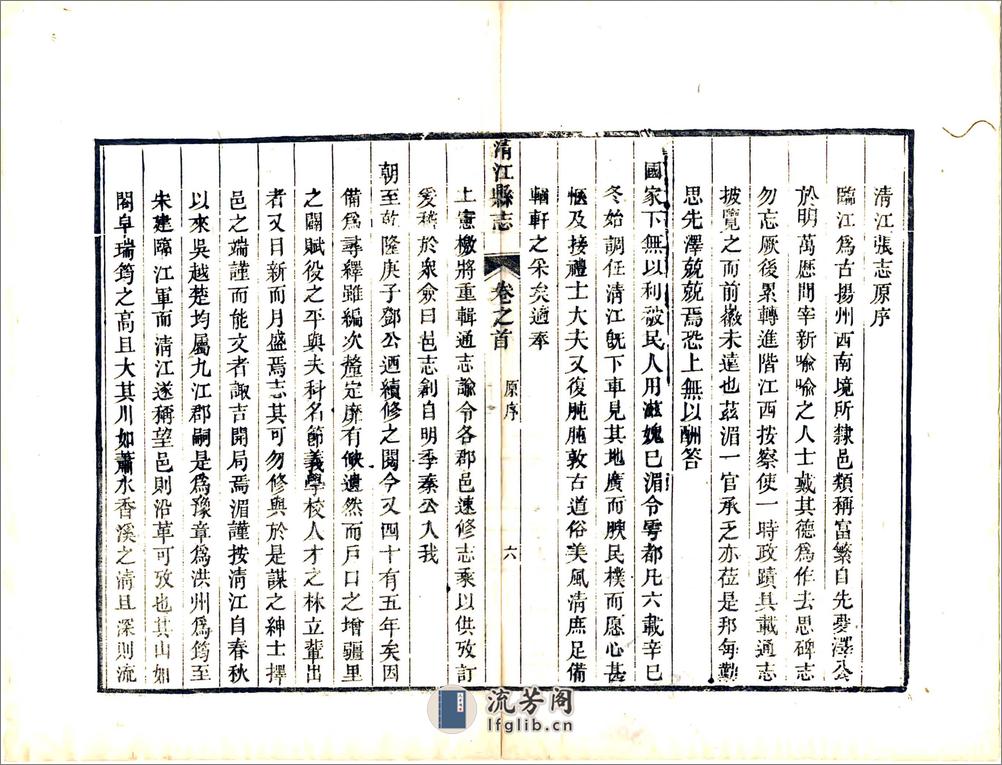 清江張志原序
臨江爲古揚州西南境所隸邑類稱富繁自先燮澤公
於明萬歷間宰新喻喻之人士戴其德爲作去思碑志
勿忘厥後累轉進階江西按察使一時政蹟具載通志
披覽之而前徽未遠也茲湄一官承乏亦莅是邦每勤
思先澤兢兢焉恐上無以酬答
國家下無以利被民人用滋媿已湄令雩都凡六載辛巳
冬始調任淸江旣下車見其地廣而腴民樸而愿心甚
愜及接禮士大夫又復肫肫敦古道俗美風淸庶足備
輶軒之采矣適奉
上憲檄將重輯通志諭令各郡邑速修志乘以供攷訂
爰稽於衆僉曰邑志創自明季秦公入我
朝至乾隆庚子鄧公迺續修之閱今又四十有五年矣因
備爲尋繹雖編次釐定靡有缺遺然而戸口之增疆里
之闢賦役之平與夫科名節義學校人才之林立輩出
者又日新而月盛焉志其可勿修與於是謀之紳士擇
邑之端謹而能文者諏吉開局焉湄謹按淸江自春秋
以來吳越楚均屬九江郡嗣是爲豫章爲洪州爲筠至
宋建臨江軍而淸江遂稱望邑則沿革可攷也其山如
閣皁瑞筠之高且大其川如蕭水香溪之淸且深則流
清江縣志
卷之首
原序
六
流芳阁
lfglib.cn